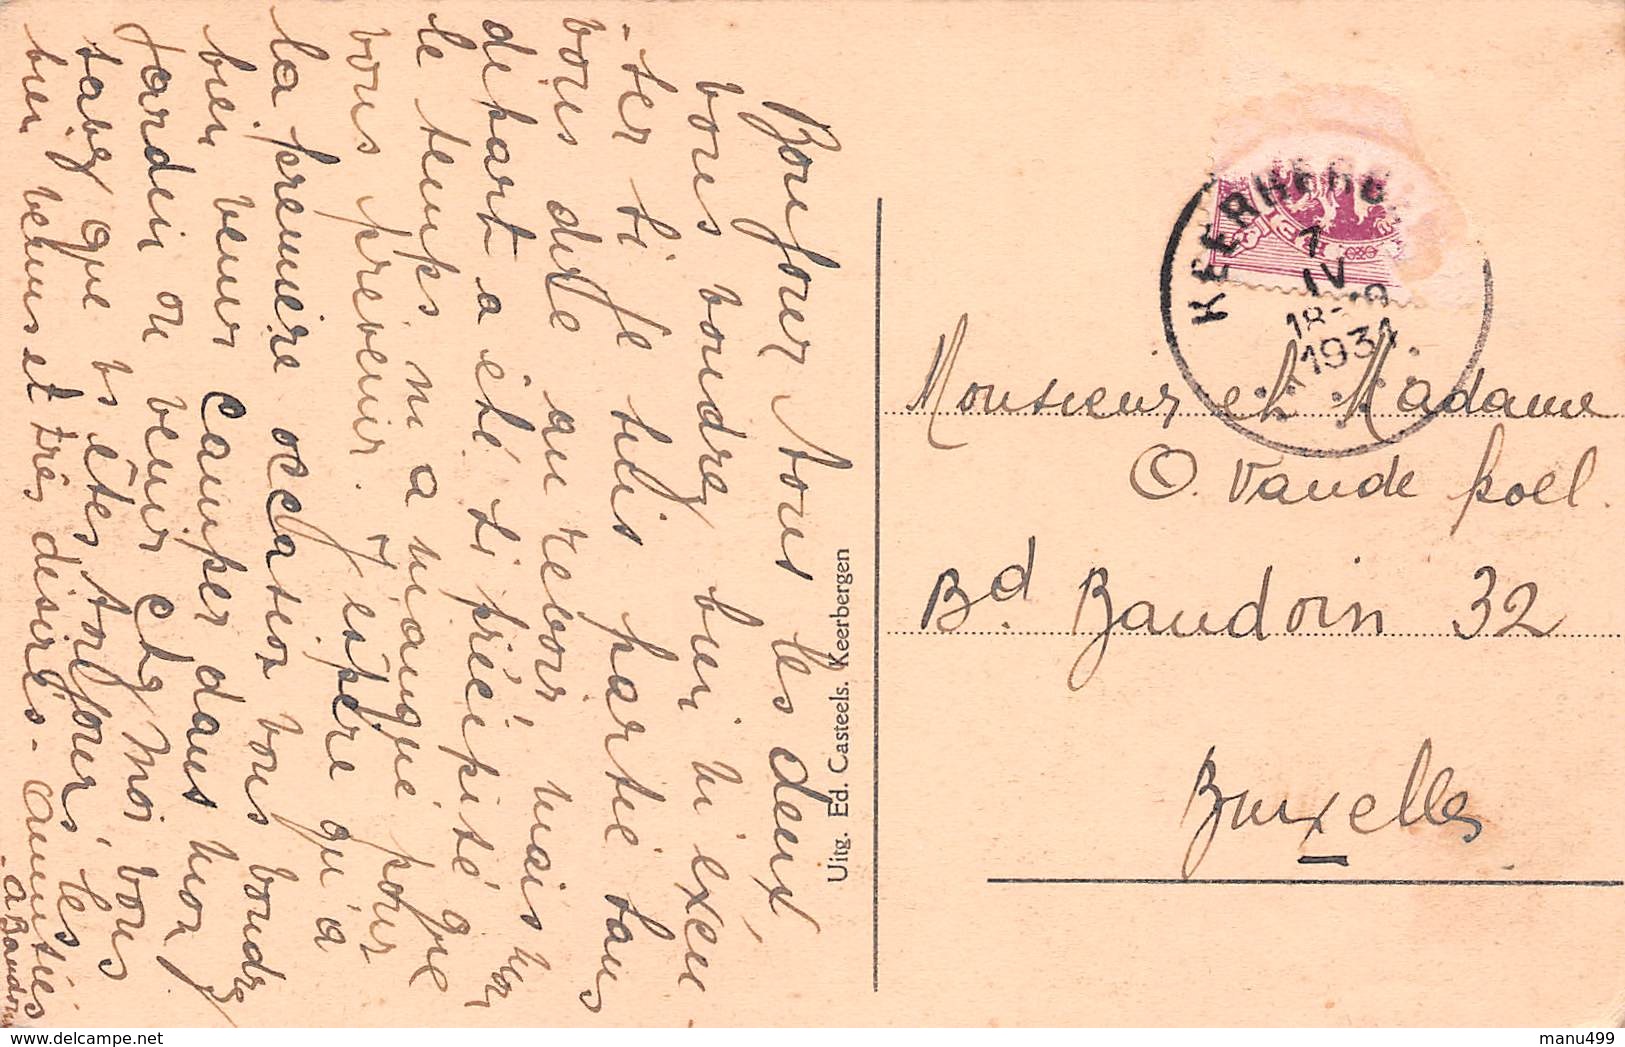 Bonjour tous les deux,
vous voudrez bien m'excu
-ser si je suis partie sans
vous dire au revoir mais mon
départ a été si précipité que
le temps m'a manqué pour
vous prévenir. J'espère qu'à
la première occasion vous voudrez
bien venir camper dans mon
jardin ou venir chez moi vous
savez que vs êtes toujours les
bien venus et très désirés - Amitiés
A. Baudoin
Uitg. Ed. Casteels. Keerbergen
KEERBERGEN
7
IV
18-19
1931
Monsieur et Madame
O. Vande poel.
Bd. Baudoin 32
Bruxelles
manu499